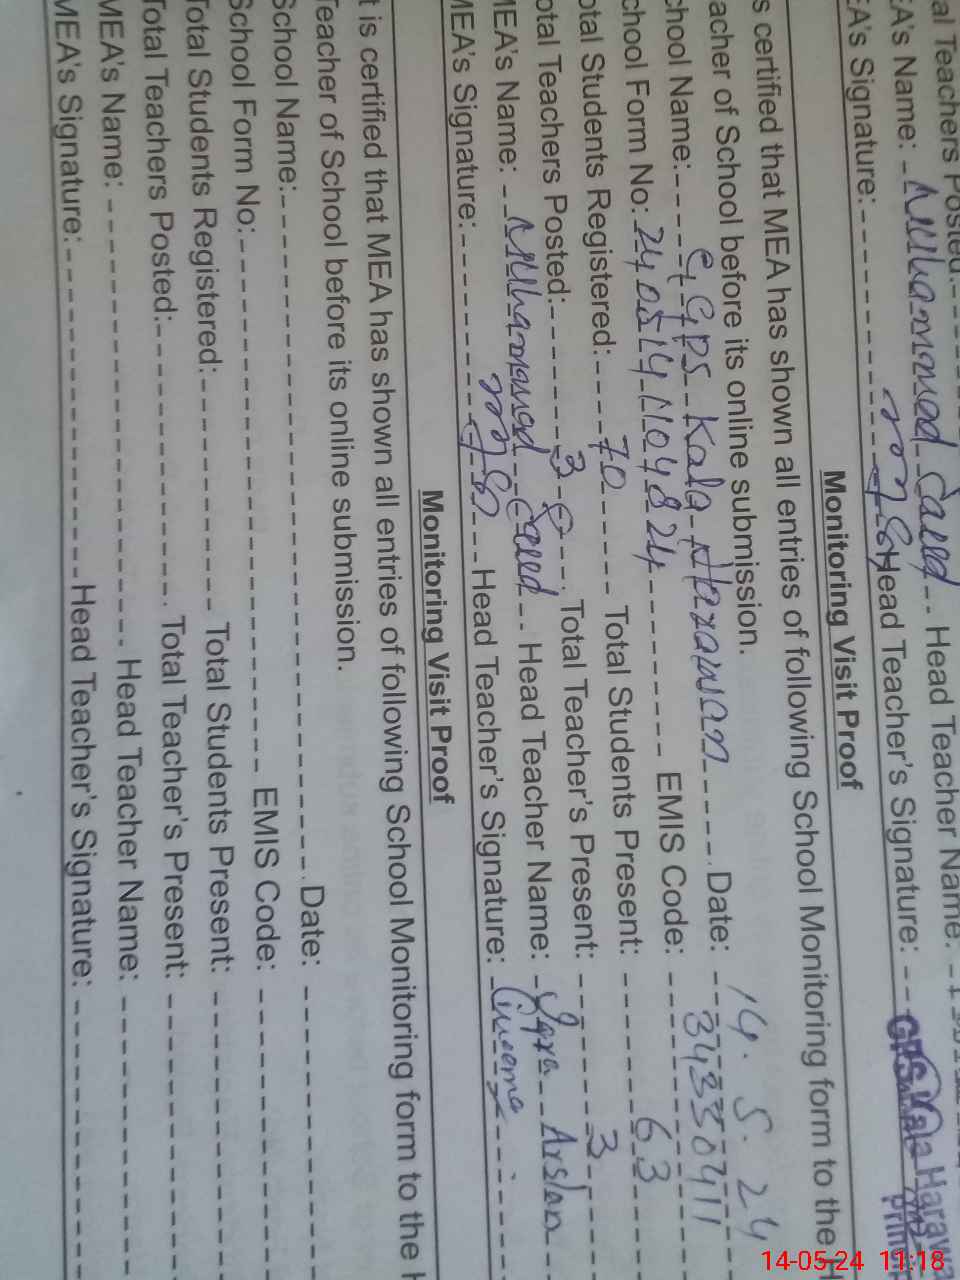 al Teachers Posted:
EA's Name: Muhammad Saeed Head Teacher Name:
EA's Signature: Head Teacher's Signature:
GPS Kala Harawa
Monitoring Visit Proof
s certified that MEA has shown all entries of following School Monitoring form to the H
acher of School before its online submission.
chool Name: GGPS Kala Harawan Date: 14.5.24
chool Form No: EMIS Code: 34330411
otal Students Registered: 70 Total Students Present: 63
otal Teachers Posted: 3 Total Teacher's Present: 3
MEA's Name: Muhammad Saeed Head Teacher Name: Iqra Arslan
MEA's Signature: Head Teacher's Signature:
Monitoring Visit Proof
t is certified that MEA has shown all entries of following School Monitoring form to the H
Teacher of School before its online submission.
School Name: Date:
School Form No: EMIS Code:
Total Students Registered: Total Students Present:
Total Teachers Posted: Total Teacher's Present:
MEA's Name: Head Teacher Name:
MEA's Signature: Head Teacher's Signature:
14-05-24 11:18